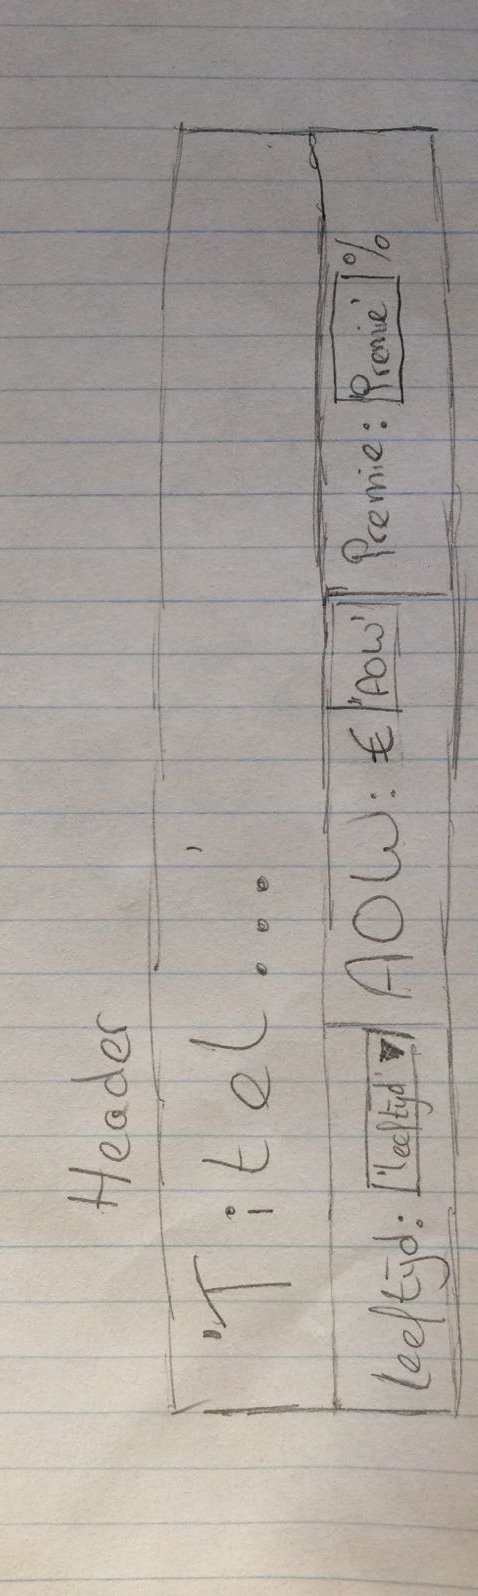 Header
"Titel...'
Leeftijd: 'Leeftijd' AOW: € "AOW" Premie: 'Premie' %